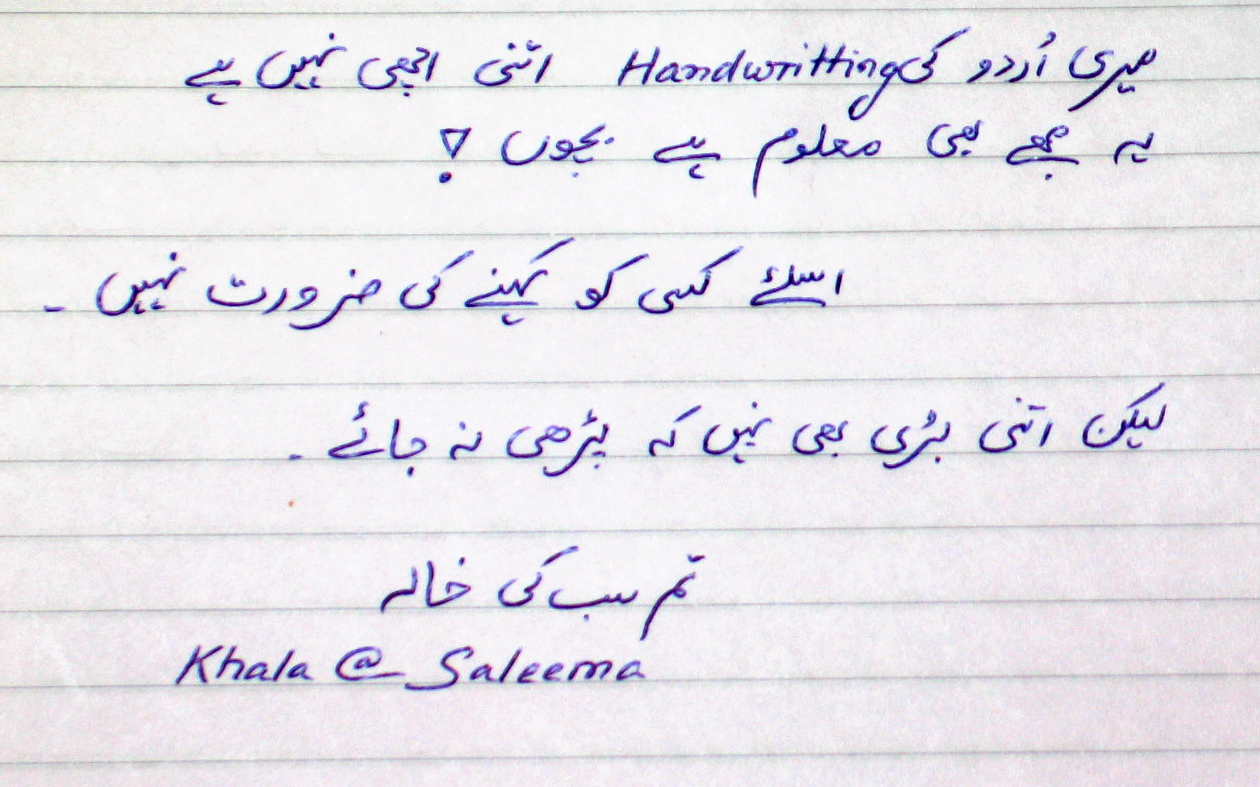 میری اُردو کی Handwritting اتنی اچھی نہیں ہے
یہ مجھے بھی معلوم ہے بچوں !
اسلئے کسی کو کہنے کی ضرورت نہیں ۔
لیکن اتنی بُری بھی نہیں کہ پڑھی نہ جائے ۔
تم سب کی خالہ
Khala @ Saleema